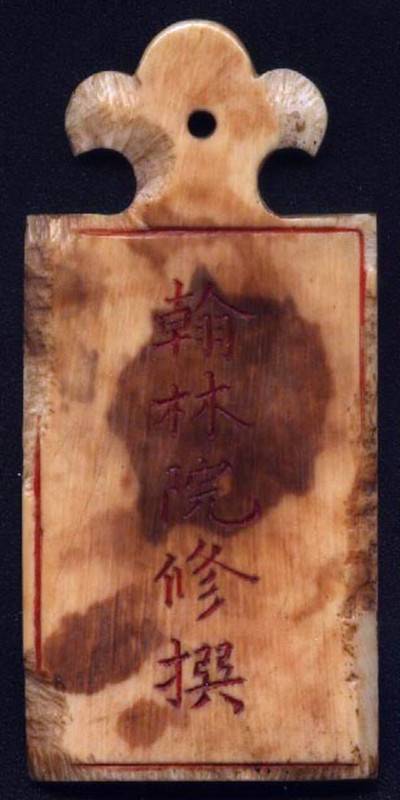 翰林院修撰